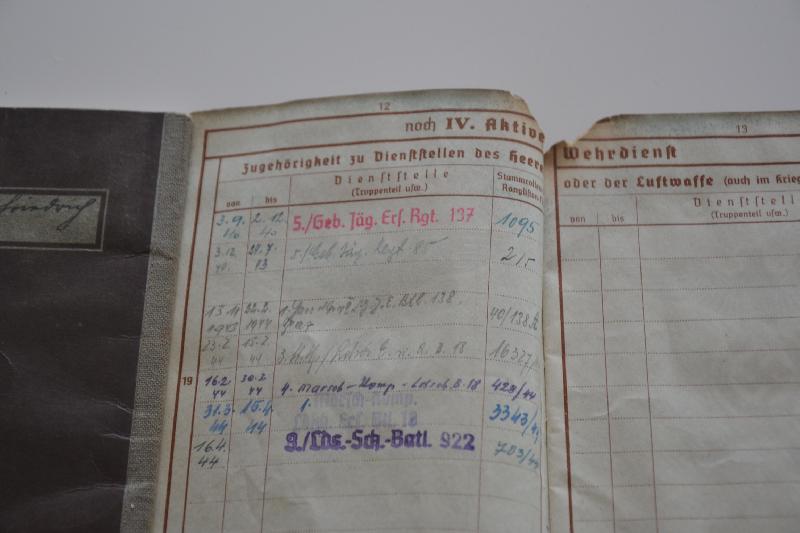 Friedrich
12
noch IV. Aktive
Zugehörigkeit zu Dienststellen des Heere
von
bis
Dienststelle
(Truppenteil usw.)
Stammrollen
3.9. 2.12. 5./Geb. Jäg. Ers. Rgt. 137 1095
40 40
3.12. 5./Geb. Jäg. Regt. 85 215
40. 43
13.11 22.2. 138. 40/138
1943 1944 Graz
23.2. 15.2.
44 44 18 16327
19 16.2. 30.3. 4. Marsch-Komp. 18 428/44
44 44
31.3. 15.4. 1. Marsch-Komp. 3343/44
44 44 Ers. Btl. 18
16.4. 9./Lds.-Sch.-Batl. 922 703/44
44
13
Wehrdienst
oder der Luftwaffe (auch im Krieg
von
bis
Dienststelle
(Truppenteil usw.)